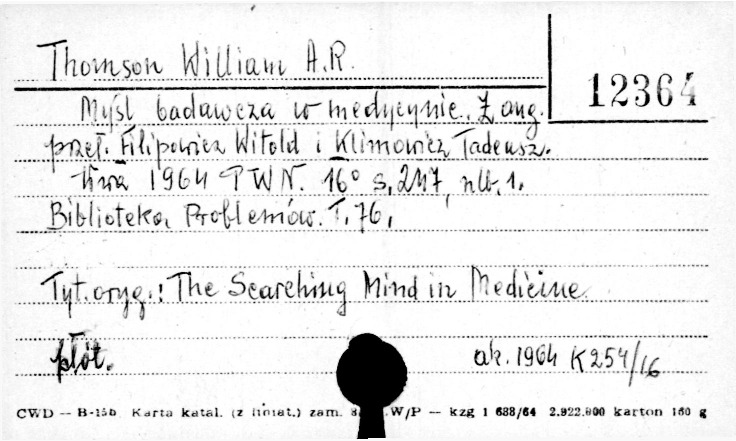 Thomson William A.R.
12364
Myśl badawcza w medycynie. Z ang.
przeł. Filipowicz Witold i Klimowicz Tadeusz.
W-wa 1964 PWN. 16° s. 247, nlb. 1.
Biblioteka Problemów. T. 76.
Tyt. oryg.: The Searching Mind in Medicine
płót.
ak. 1964 K 254/16
CWD — B-15b. Karta katal. (z liniat.) zam. W/P — kzg 1 688/64 2.922.000 karton 160 g